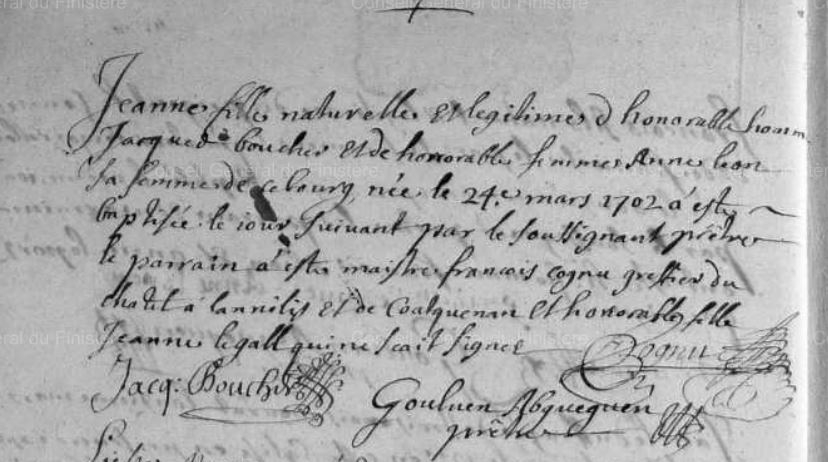 Jeanne fille naturelle et legitime d honorable homme
Jacques boucher et de honorable femme Anne leon
sa femme de ce bourg, née le 24.e mars 1702 a esté
baptisée le jour suivant par le soussignant prêtre
le parrain a esté maistre francois cognu greffier du
a lannilis et de Coatquenan et honorable fille
Jeanne le gall qui ne scait signer Cognu
Jacq: Boucher
Goulven Abgueguen
prêtre